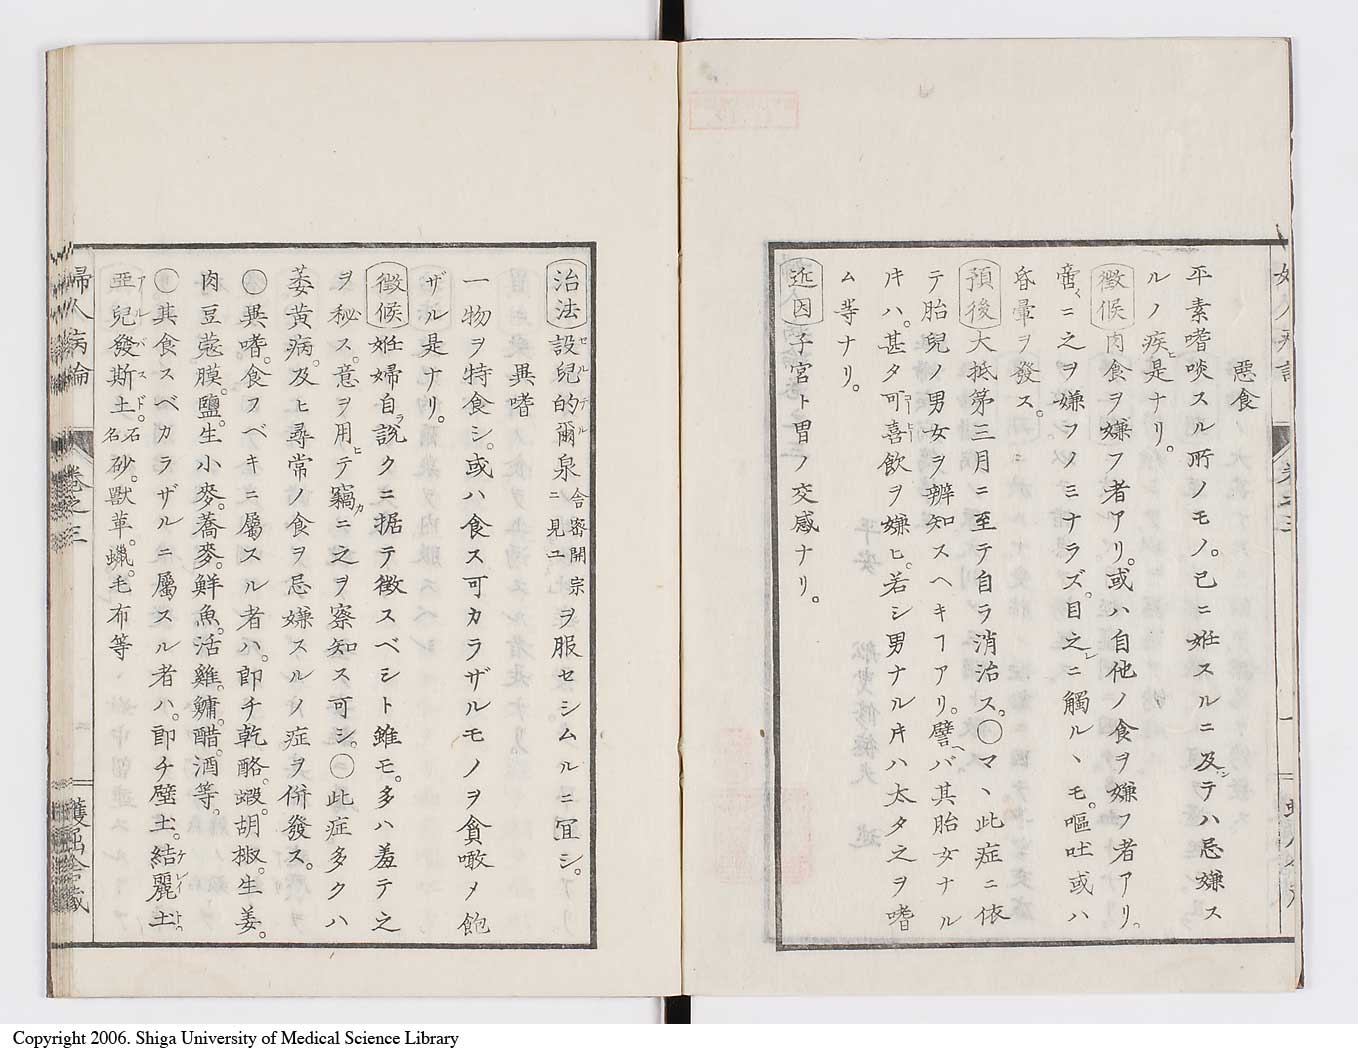 惡食
平素嗜啖スル所ノモノ。已ニ姙スルニ及シテハ忌嫌ス
ルノ疾ヒ是ナリ。
徴候 肉食ヲ嫌フ者アリ。或ハ自他ノ食ヲ嫌フ者アリ。
啻ニ之ヲ嫌フノミナラズ。目之レニ觸ルヽモ。嘔吐或ハ
昏暈ヲ發ス。
預後 大抵第三月ニ至テ自ラ消治ス。〇マヽ此症ニ依
テ胎兒ノ男女ヲ辨知スヘキヿアリ。譬ヘバ其胎女ナル
片ハ。甚タ可喜飲ヲ嫌ヒ。若シ男ナル片ハ太タ之ヲ嗜
ム等ナリ。
近因 子宮ト胃ノ交感ナリ。
治法 設兒的爾泉 舎密開宗ニ見ユ ヲ服セシムルニ冝シ。
セルテル
異嗜
一物ヲ特食シ。或ハ食ス可カラザルモノヲ貪噉メ飽
ザル是ナリ。
徴候 姙婦自ラ説クニ据テ徴スベシト雖モ。多ハ羞テ之
ヲ秘ス。意ヲ用ヒテ竊カニ之ヲ察知ス可シ。〇此症多クハ
萎黄病。及ヒ尋常ノ食ヲ忌嫌スルノ症ヲ併發ス。
〇異嗜。食フベキニ屬スル者ハ。即チ乾酪。蝦。胡椒。生姜。
肉豆蔲膜。鹽。生小麥。蕎麥。鮮魚。活雞。鱅。醋。酒等。
〇其食スベカラザルニ屬スル者ハ。即チ壁土。結麗土。
ケレイト
亞兒發斯土。石名 砂。獸革。蠟。毛布等
アールバスド
婦人病論 卷之三